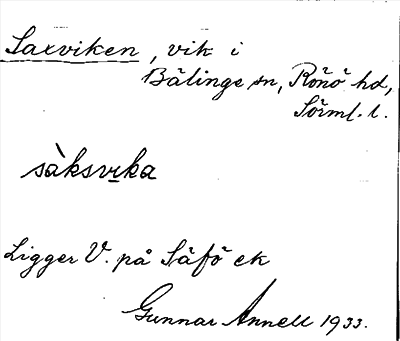 Saxviken, vik i
Bälinge sn, Rönö hd,
Sörml. l.
sàksvıka
Ligger V. på Säfö ek
Gunnar Annell 1933.